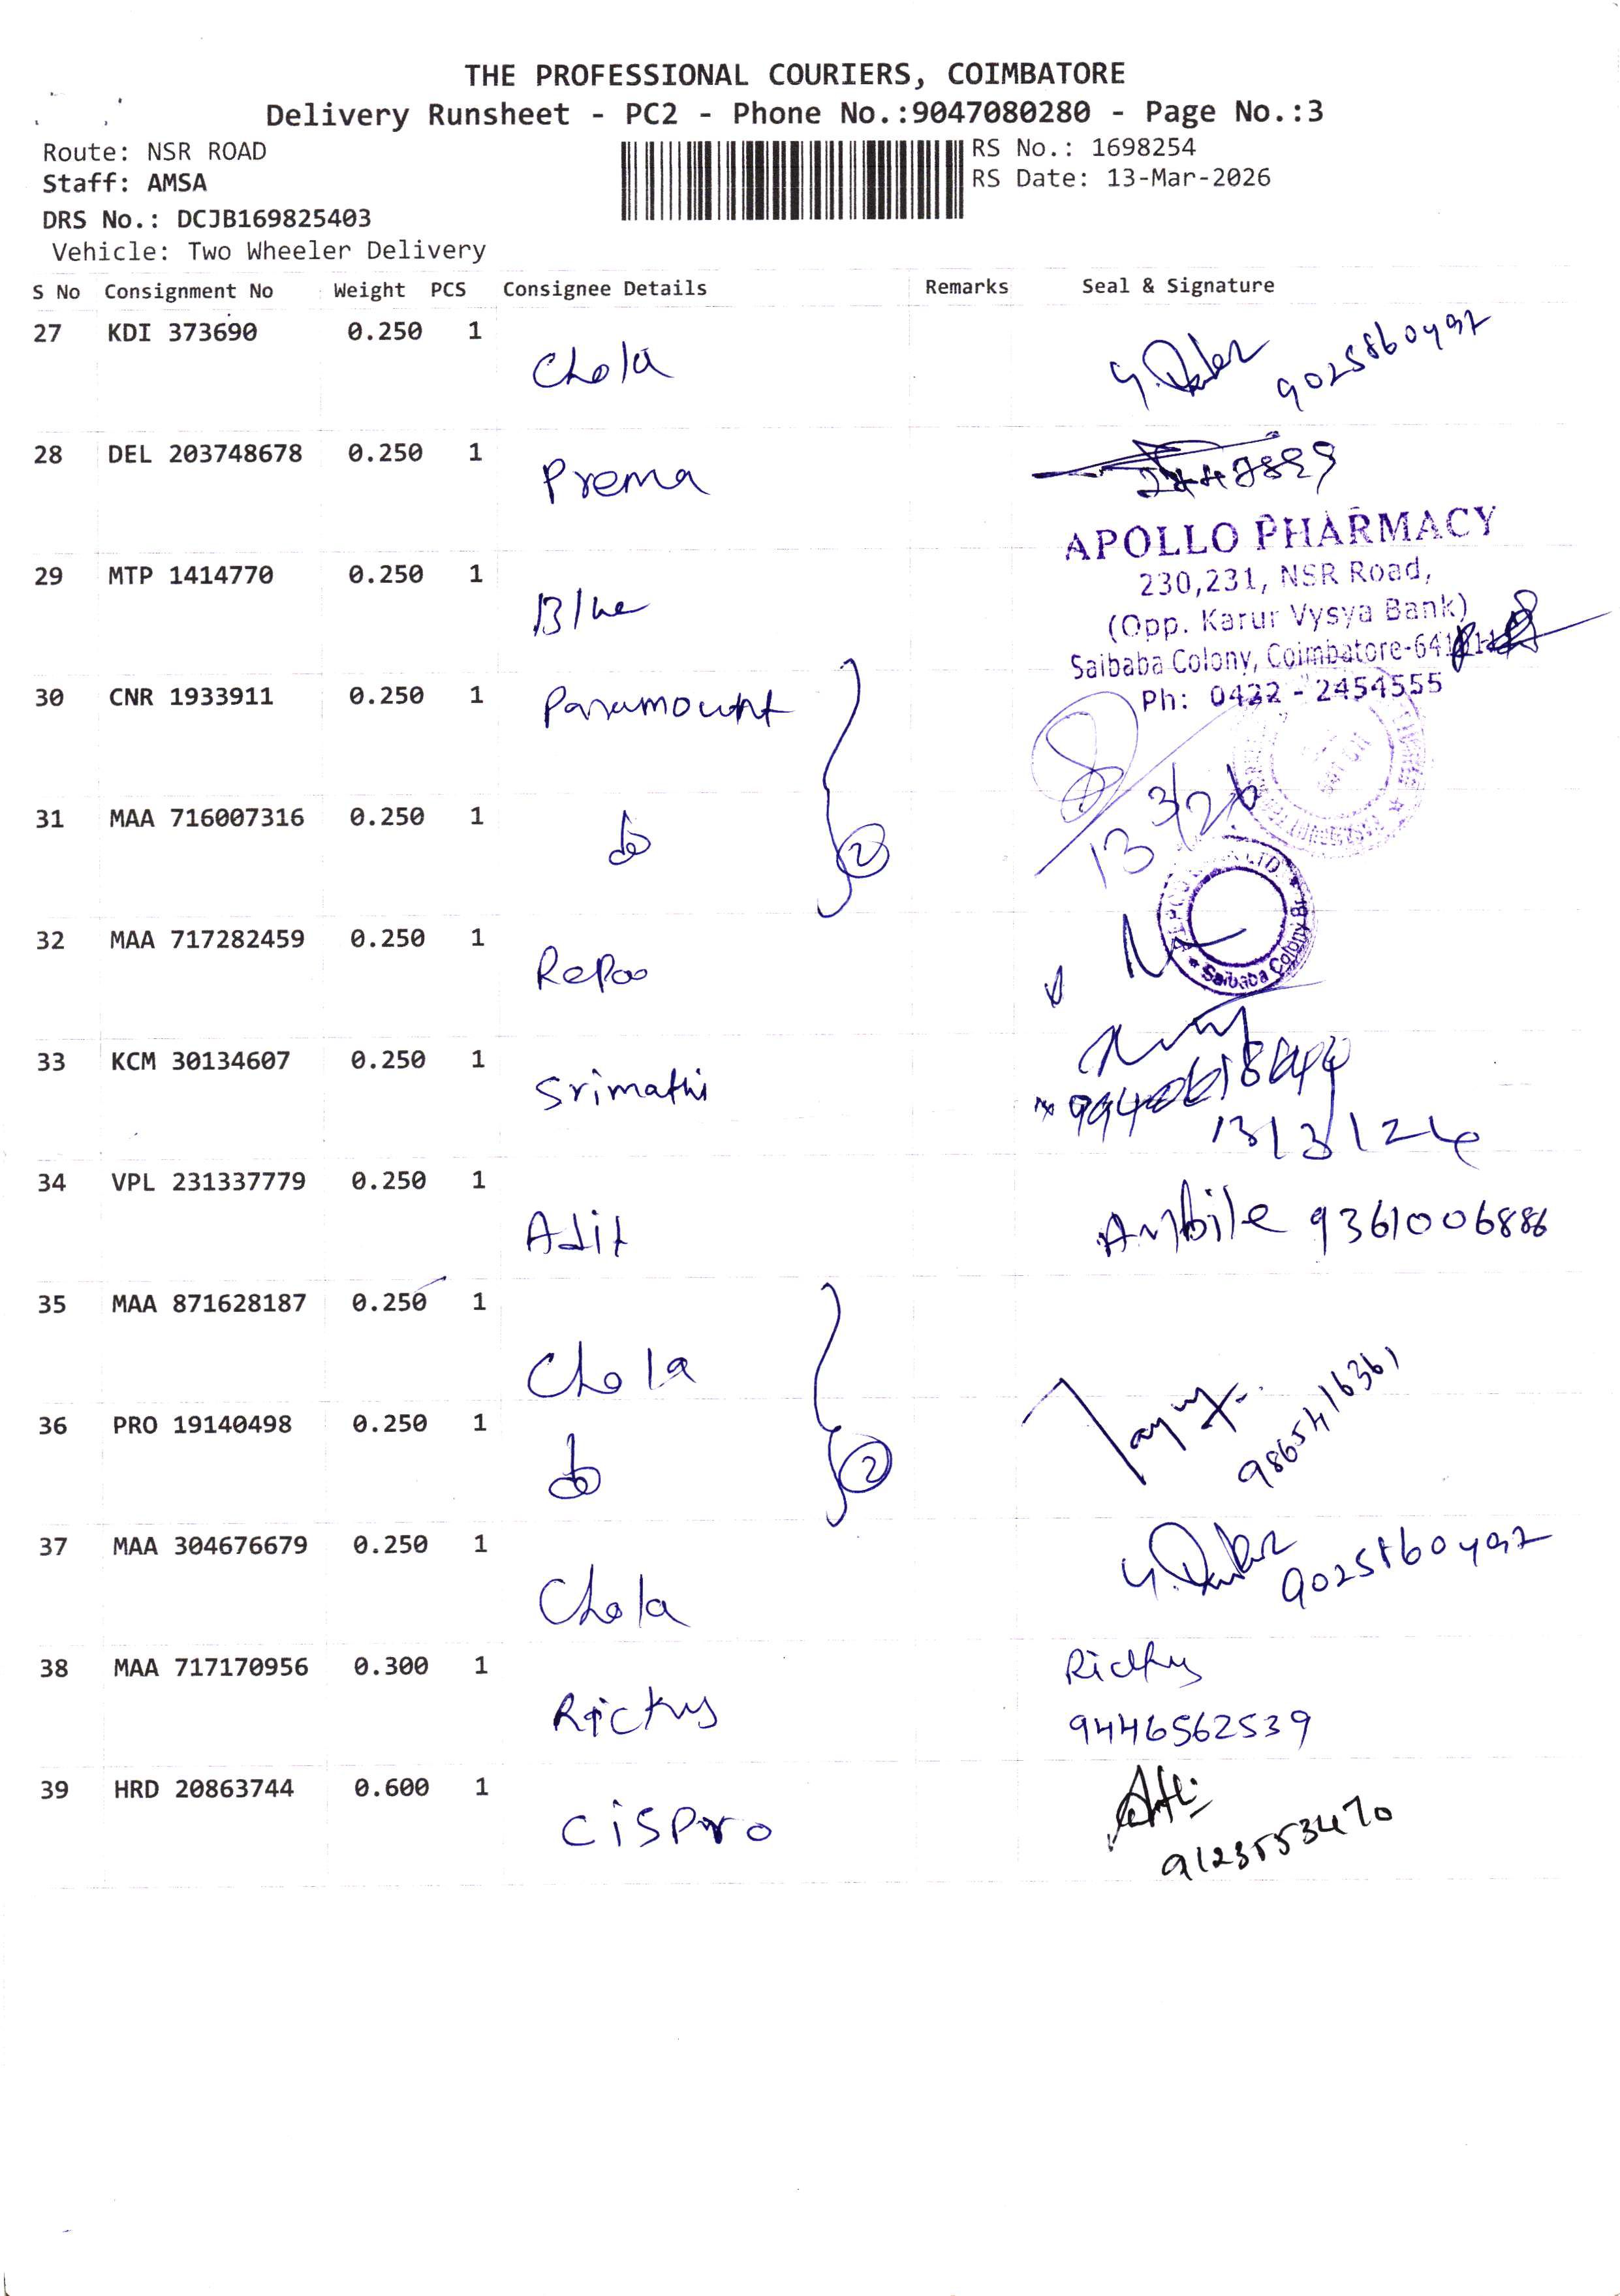 THE PROFESSIONAL COURIERS, COIMBATORE
Delivery Runsheet - PC2 - Phone No.:9047080280 - Page No.:3
Route: NSR ROAD
RS No.: 1698254
Staff: AMSA
RS Date: 13-Mar-2026
DRS No.: DCJB169825403
Vehicle: Two Wheeler Delivery
S No Consignment No Weight PCS Consignee Details Remarks Seal & Signature
27 KDI 373690 0.250 1 Chola 9025860492
28 DEL 203748678 0.250 1 Prema
APOLLO PHARMACY
230,231, NSR Road,
(Opp. Karur Vysya Bank)
Saibaba Colony, Coimbatore-641
Ph: 0422 - 2454555
29 MTP 1414770 0.250 1 Blue
30 CNR 1933911 0.250 1 Paramount
31 MAA 716007316 0.250 1 do 2
13/3/26
32 MAA 717282459 0.250 1 Repco
Saibaba Colony Br.
33 KCM 30134607 0.250 1 Srimathi
13/3/26
34 VPL 231337779 0.250 1 Adit 9361006886
35 MAA 871628187 0.250 1 Chola
36 PRO 19140498 0.250 1 do 2
9865416361
37 MAA 304676679 0.250 1 Chola 9025860492
38 MAA 717170956 0.300 1 Rickys Ricky
9446562539
39 HRD 20863744 0.600 1 Cispro
9123553470